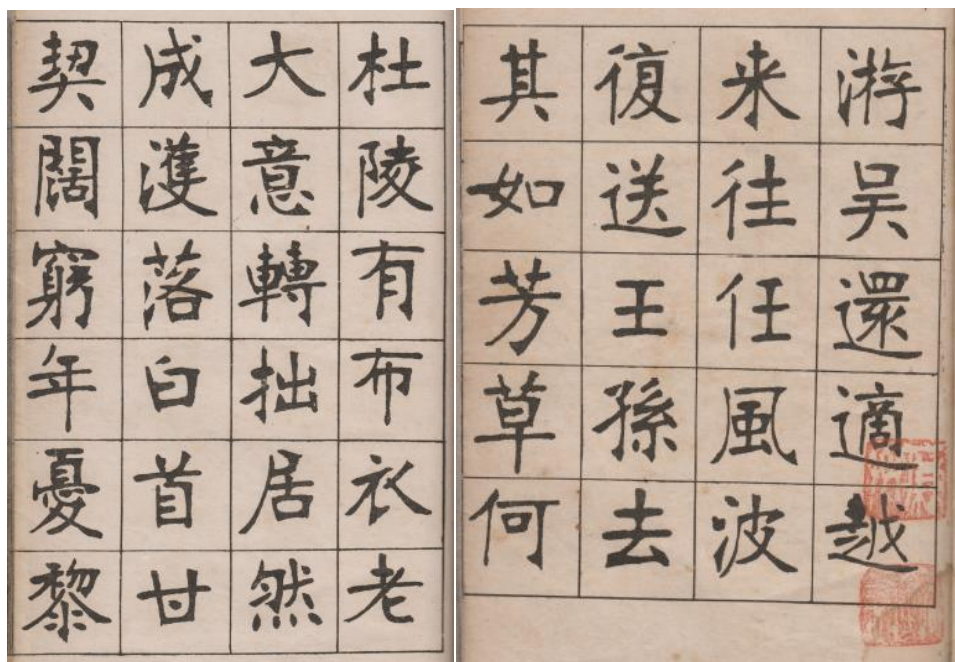 游吴還適越
来往任風波
復送王孫去
其如芳草何
杜陵有布衣老
大意轉拙居然
成濩落白首甘
契闊窮年憂黎